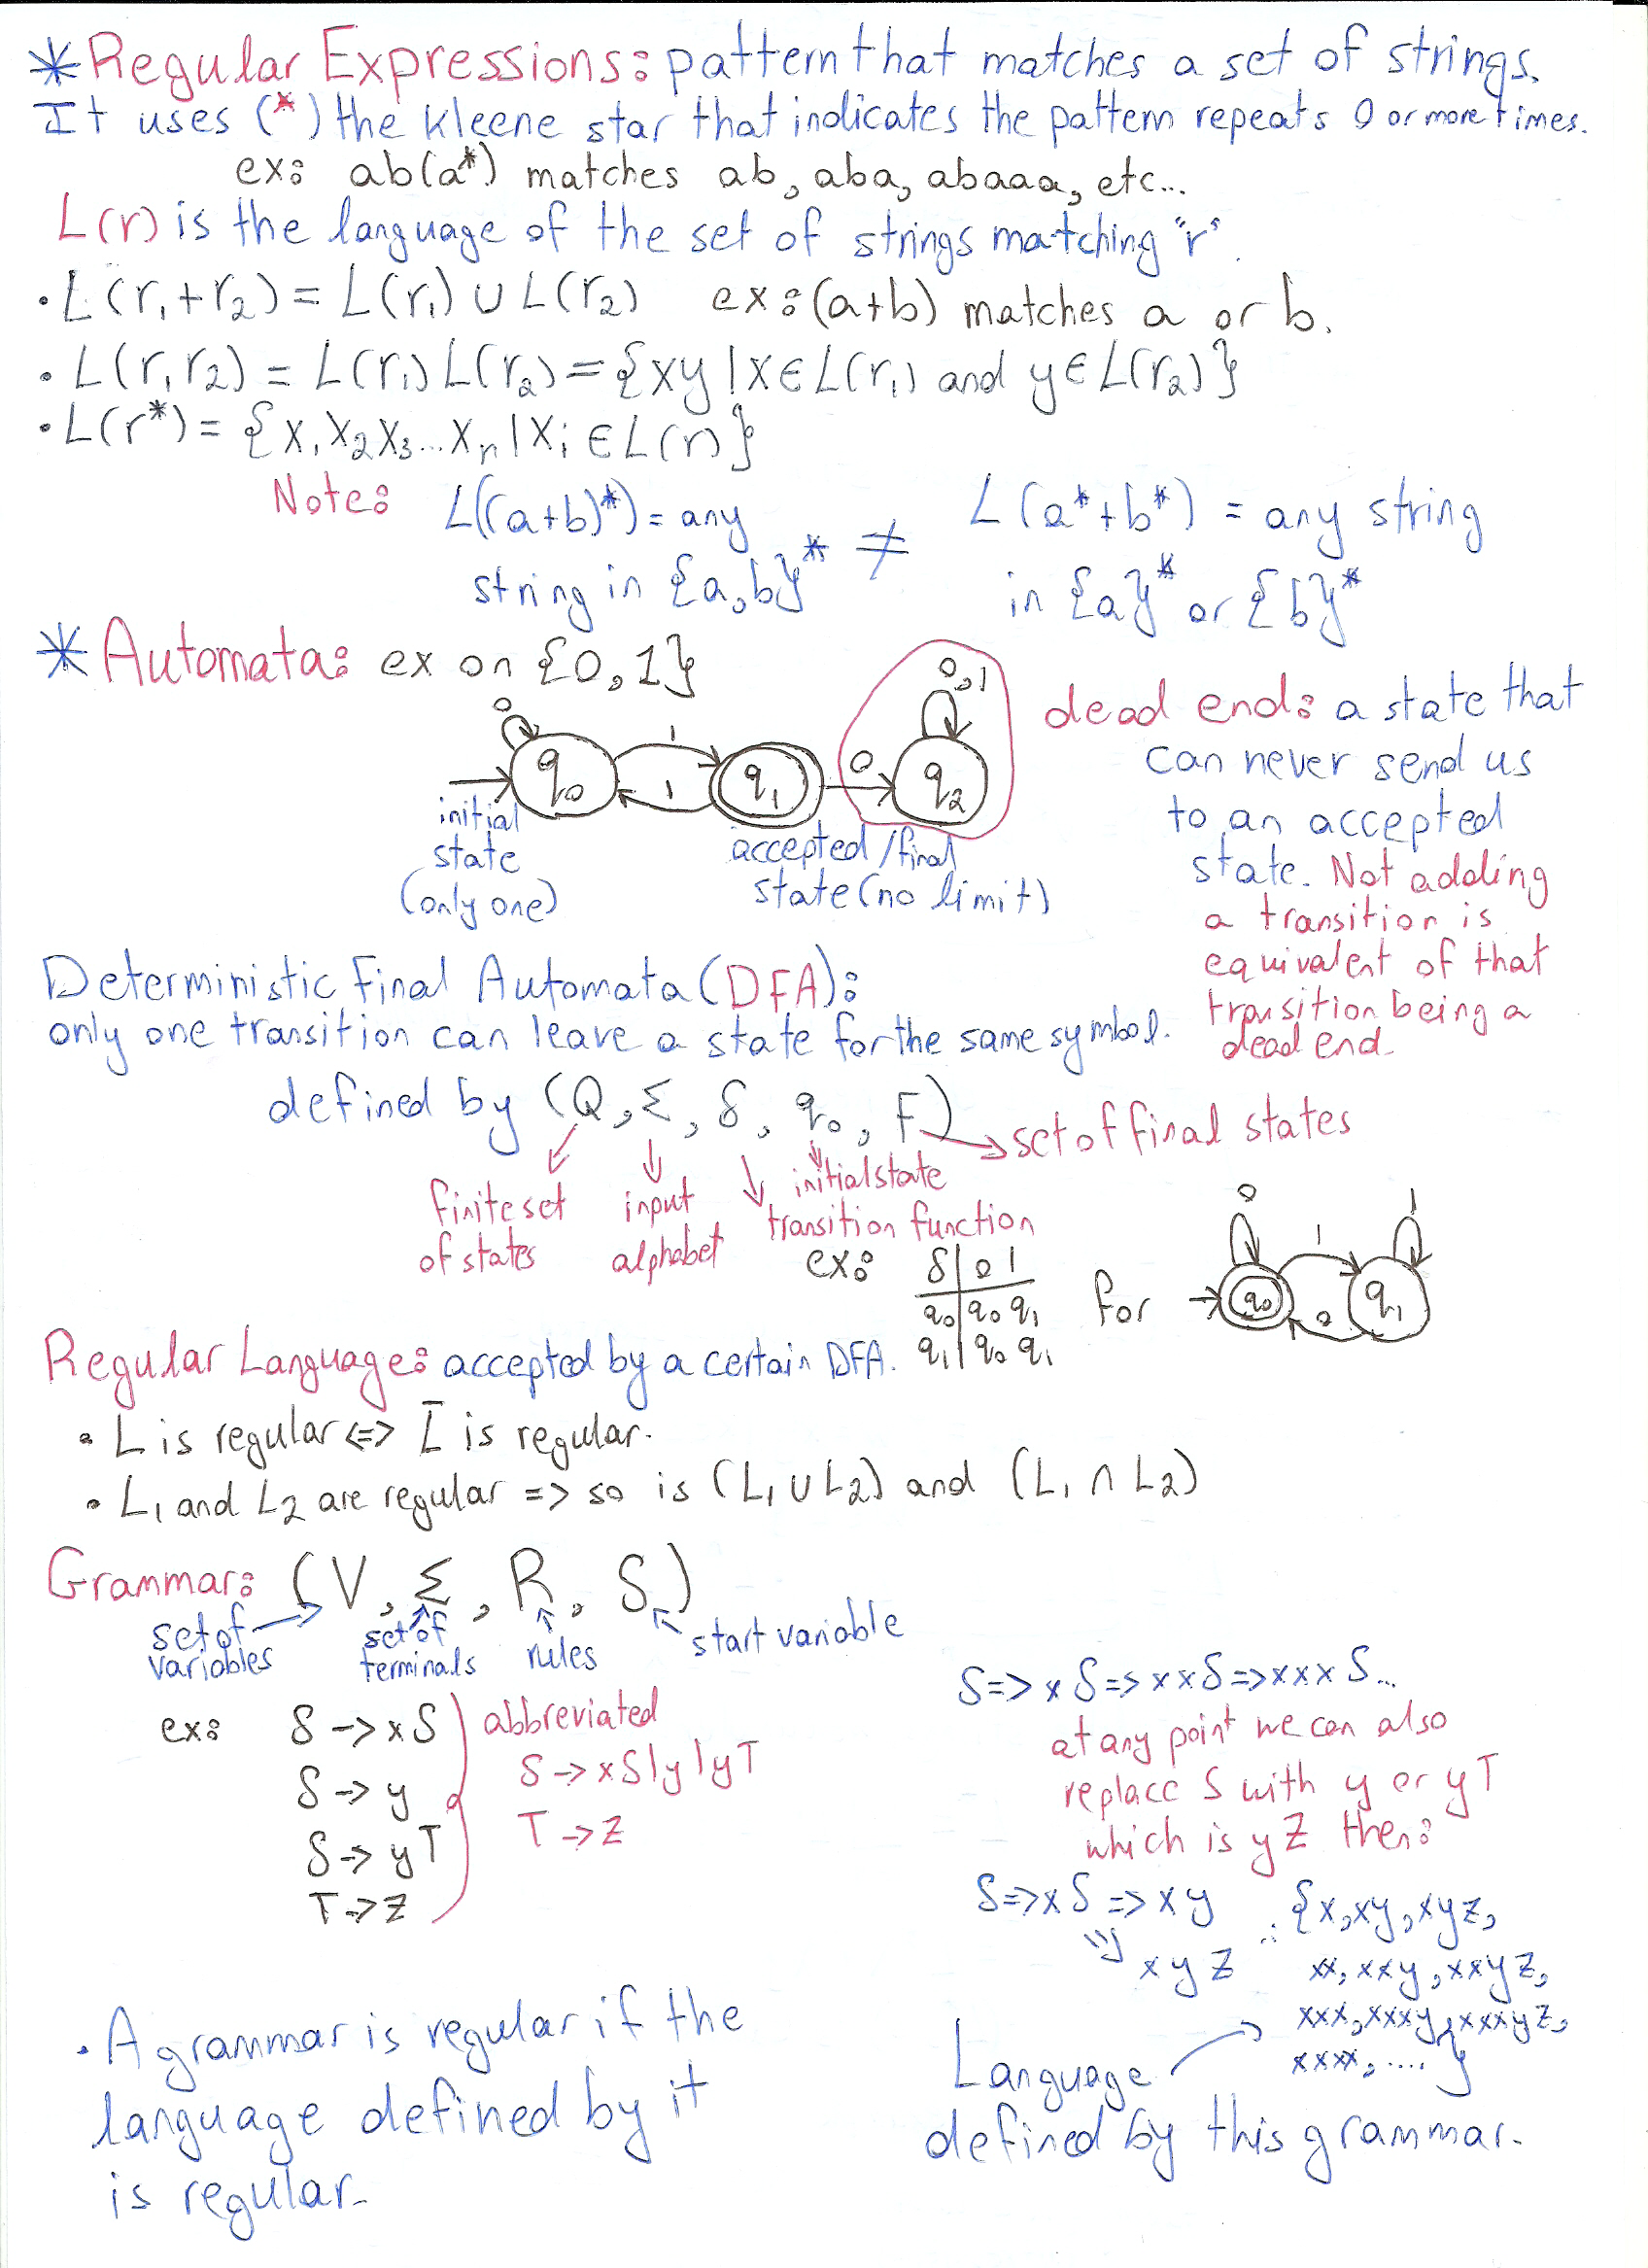 * Regular Expressions: pattern that matches a set of strings.
It uses (*) the kleene star that indicates the pattern repeats 0 or more times.
ex: ab(a*) matches ab, aba, abaaa, etc...
L(r) is the language of the set of strings matching "r".
• L(r₁+r₂) = L(r₁) ∪ L(r₂) ex: (a+b) matches a or b.
• L(r₁r₂) = L(r₁)L(r₂) = {xy | x∈L(r₁) and y∈L(r₂)}
• L(r*) = {x₁x₂x₃...xₙ | xᵢ ∈ L(r)}
Note: L((a+b)*) = any
string in {a,b}*
≠
L(a*+b*) = any string
in {a}* or {b}*
* Automata: ex on {0,1}
0
q₀
1
1
q₁
0
q₂
0,1
initial
state
(only one)
accepted/final
state (no limit)
dead end: a state that
can never send us
to an accepted
state. Not adding
a transition is
equivalent of that
transition being a
dead end.
Deterministic Final Automata (DFA):
only one transition can leave a state for the same symbol.
defined by (Q, Σ, δ, q₀, F)
set of final states
finite set
of states
input
alphabet
initial state
transition function
ex: δ | 0 1
q₀ | q₀ q₁
q₁ | q₀ q₁
for
0
q₀
1
0
q₁
1
Regular Language: accepted by a certain DFA.
• L is regular <=> L̄ is regular.
• L₁ and L₂ are regular => so is (L₁ ∪ L₂) and (L₁ ∩ L₂)
Grammar: (V, Σ, R, S)
set of
variables
set of
terminals
rules
start variable
ex: S -> xS
S -> y
S -> yT
T -> Z
abbreviated
S -> xS|y|yT
T -> Z
S => xS => xxS => xxxS...
at any point we can also
replace S with y or yT
which is yZ then:
S => xS => xy
=> xyZ
∴ {x, xy, xyz,
xx, xxy, xxyz,
xxx, xxxy, xxxyz,
xxxx, .... }
Language
defined by this grammar.
• A grammar is regular if the
language defined by it
is regular.